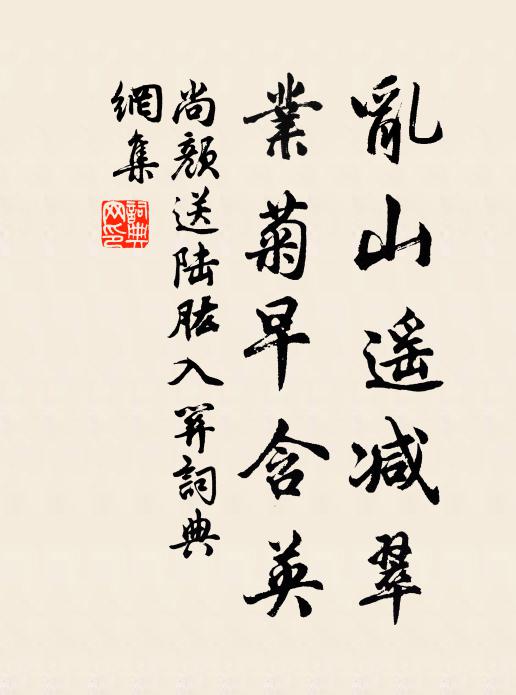 亂山遥减翠
業菊早含英
尚顏送陸肱入關詞典
網集
詞典
网印